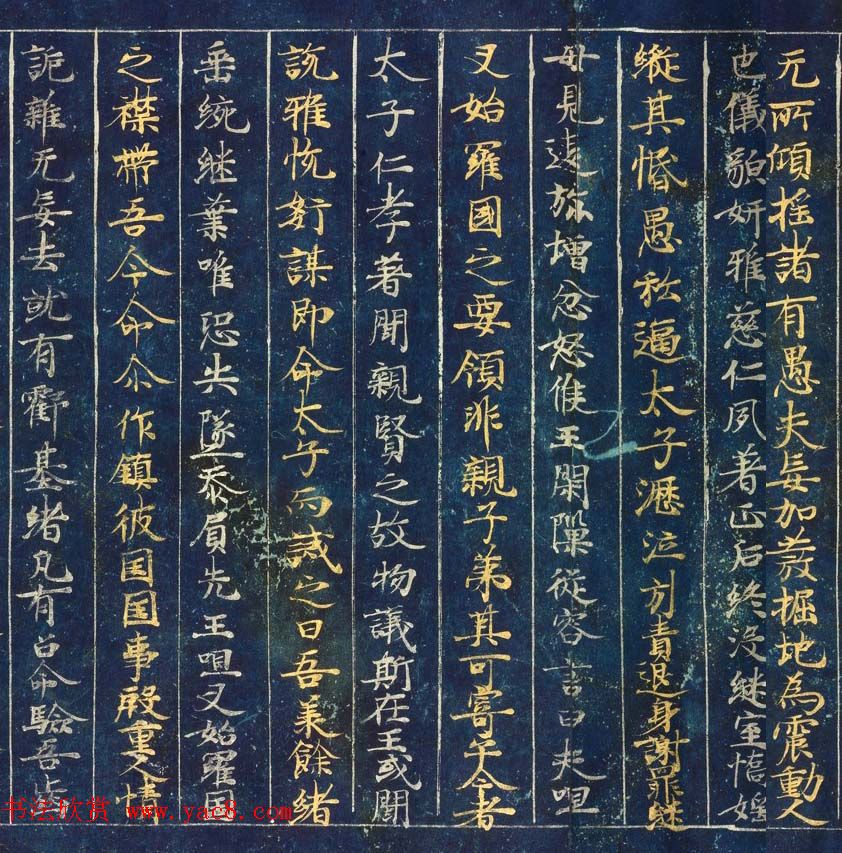 无所傾搖諸有愚夫妄加發掘地為震動人
也儀貌妍雅慈仁夙著正后終没継室憍婬
縱其惛愚私逼太子瀝泣引責退身謝罪継
母見違弥增忿怒候王閑隟從容言曰夫呾
叉始羅國之要領非親子弟其可寄乎今者
太子仁孝著聞親賢之故物議斯在王或聞
說雅悅姧謀即命太子而誡之曰吾承餘緒
垂統継業唯恐失墜忝辱先王呾叉始羅国
之襟帶吾今命尒作鎮彼国国事殷重人情
詭雜无妄去就有虧基緒凡有召命驗吾齒
书法欣赏 www.yac8.com